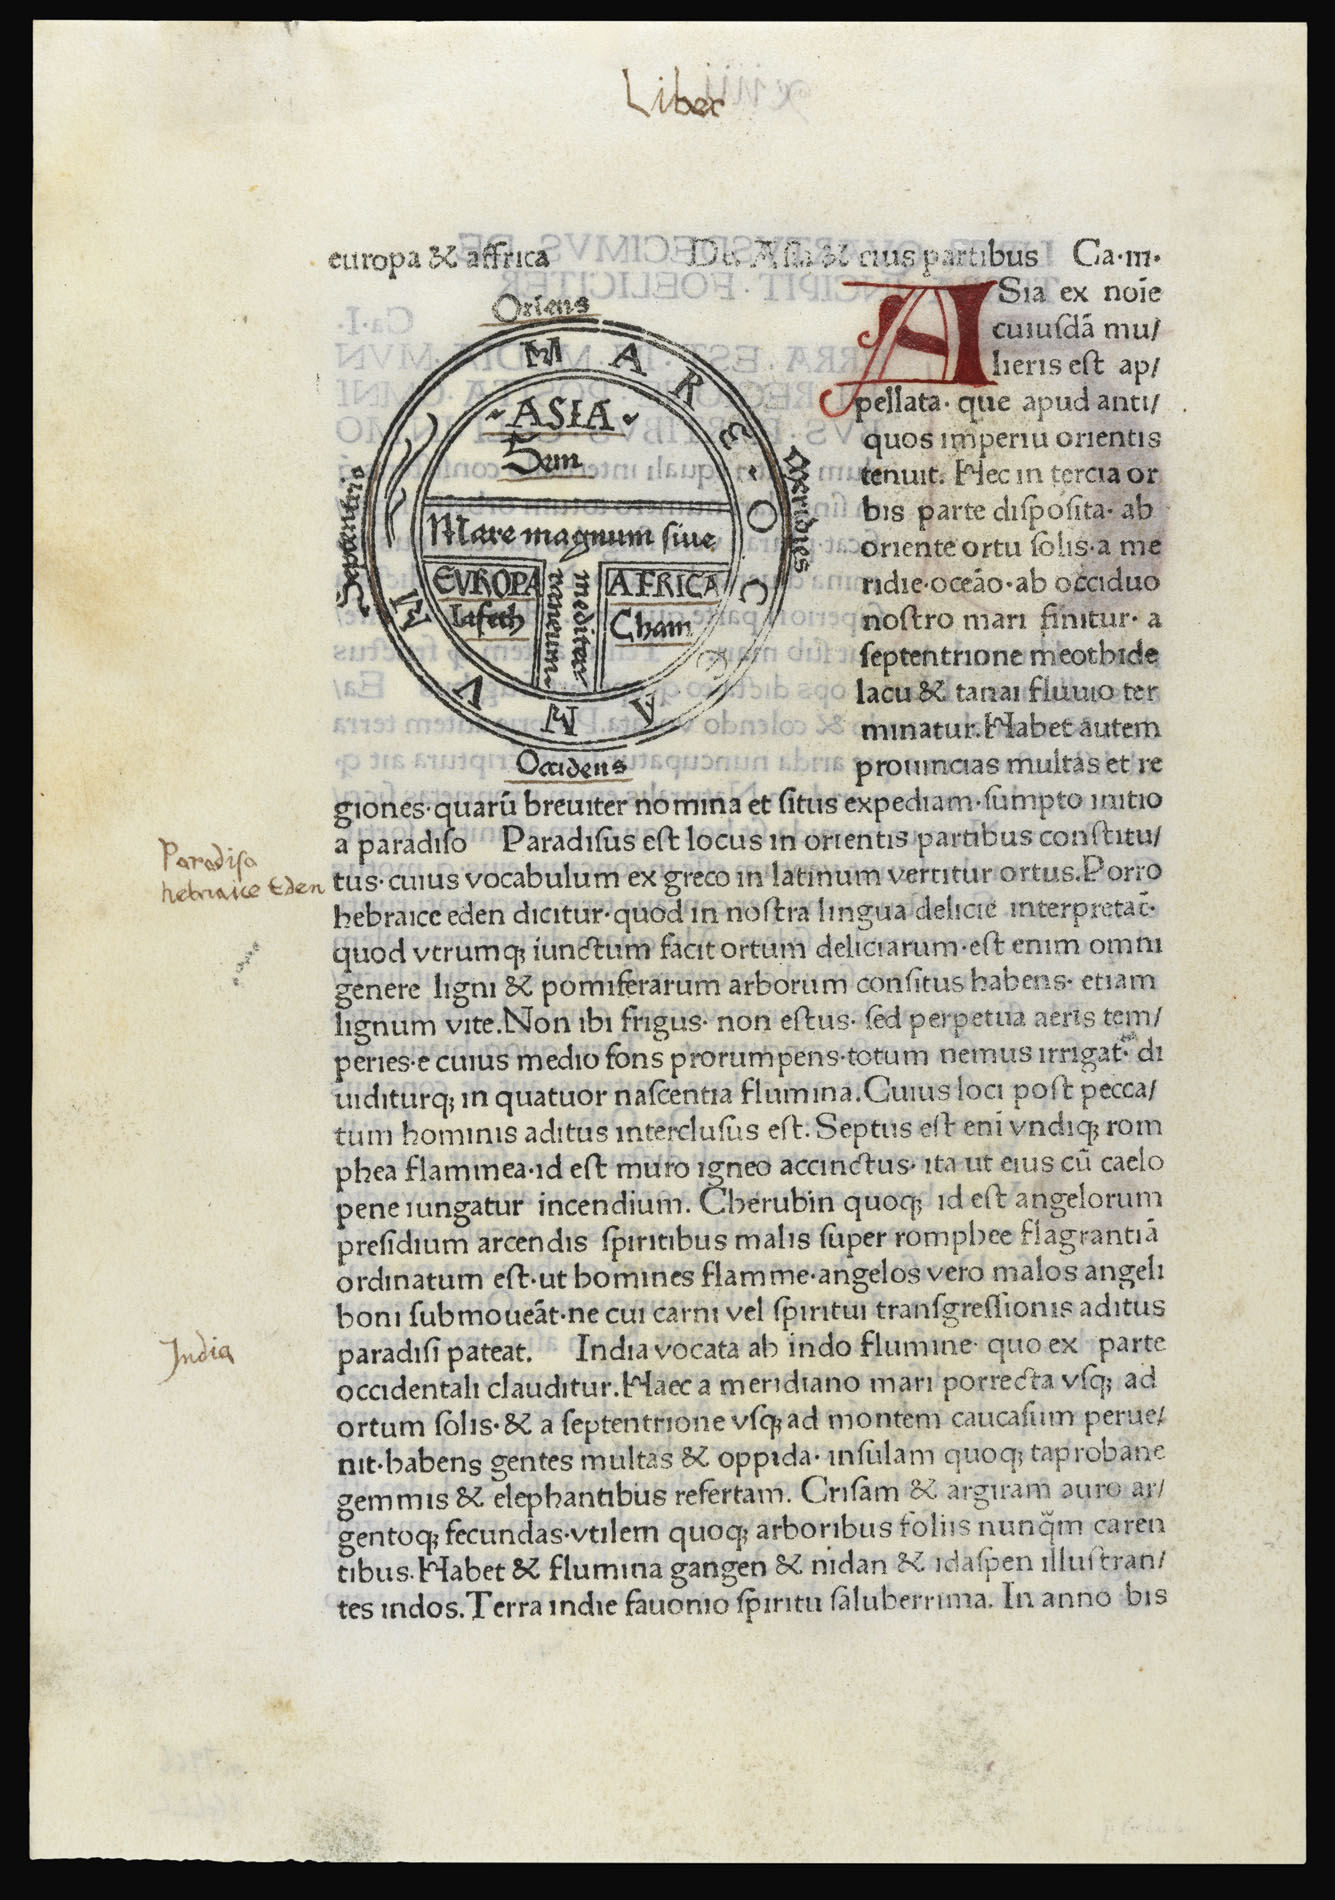 Liber
europa & affrica De Asia & eius partibus Ca·III·
Oriens
MARE·OCEANVM
Septentrio
Meridies
·ASIA·
Sem
Mare magnum siue
mediter
raneum·
EVROPA
Iafeth
AFRICA
Cham
Occidens
ASia ex noīe
cuiusdā mu/
lieris est ap/
pellata· que apud anti/
quos imperiu orientis
tenuit. Hec in tercia or
bis parte disposita· ab
oriente ortu solis·a me
ridie·oceāo·ab occiduo
nostro mari finitur· a
septentrione meothide
lacu & tanai fluuio ter
minatur.Habet autem
prouincias multas et re
giones·quarū breuiter nomina et situs expediam·sumpto initio
a paradiso Paradisus est locus in orientis partibus constitu/
Paradiso
hebraice Eden
tus·cuius vocabulum ex greco in latinum vertitur ortus.Porro
hebraice eden dicitur·quod in nostra lingua delicie interpretat̄·
quod vtrumq; iunctum facit ortum deliciarum·est enim omni
genere ligni & pomiferarum arborum consitus habens· etiam
lignum vite.Non ibi frigus· non estus· sed perpetua aeris tem/
peries·e cuius medio fons prorumpens·totum nemus irrigat· di
uiditurq; in quatuor nascentia flumina.Cuius loci post pecca/
tum hominis aditus interclusus est.Septus est enī vndiq; rom
phea flammea·id est muro igneo accinctus· ita ut eius cū caelo
pene iungatur incendium. Cherubin quoq; id est angelorum
presidium arcendis spiritibus malis super romphee flagrantiā
ordinatum est·ut homines flamme·angelos vero malos angeli
boni submoueāt·ne cui carni vel spiritui transgressionis aditus
India
paradisi pateat. India vocata ab indo flumine· quo ex parte
occidentali clauditur.Haec a meridiano mari porrecta vsq; ad
ortum solis·& a septentrione vsq; ad montem caucasum perue/
nit·habens gentes multas & oppida· insulam quoq; taprobane
gemmis & elephantibus refertam. Crisam & argiram auro ar/
gentoq; fecundas·vtilem quoq; arboribus foliis nunq̄m caren
tibus.Habet & flumina gangen & nidan & idaspen illustran/
tes indos.Terra indie fauonio spiritu saluberrima. In anno bis